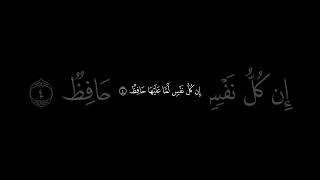 إِن كُلُّ نَفْسٍ لَّمَّا عَلَيْهَا حَافِظٌ ٤
إِن كُلُّ نَفْسٍ حَافِظٌ ٤